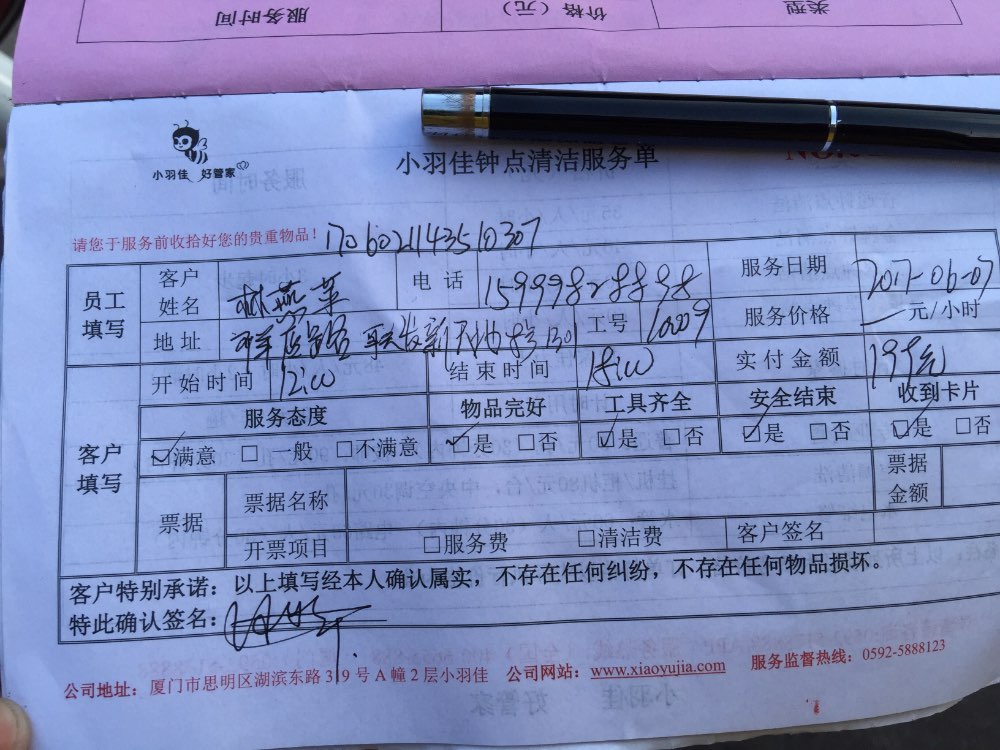 服务时间 价格（元） 类型
小羽佳 好管家
小羽佳钟点清洁服务单
请您于服务前收拾好您的贵重物品！ 170602114351 0307
员工填写 客户姓名 林燕苹 电话 15999828898 服务日期 2017-06-07
地址 联发新天地 1301 工号 10009 服务价格 — 元/小时
客户填写 开始时间 12:00 结束时间 18:00 实付金额 199元
服务态度 物品完好 工具齐全 安全结束 收到卡片
☑满意 □一般 □不满意 ☑是 □否 ☑是 □否 ☑是 □否 ☑是 □否
票据 票据名称 票据金额
开票项目 □服务费 □清洁费 客户签名
客户特别承诺：以上填写经本人确认属实，不存在任何纠纷，不存在任何物品损坏。
特此确认签名：
公司地址：厦门市思明区湖滨东路319号A幢2层小羽佳 公司网站：www.xiaoyujia.com 服务监督热线：0592-5888123